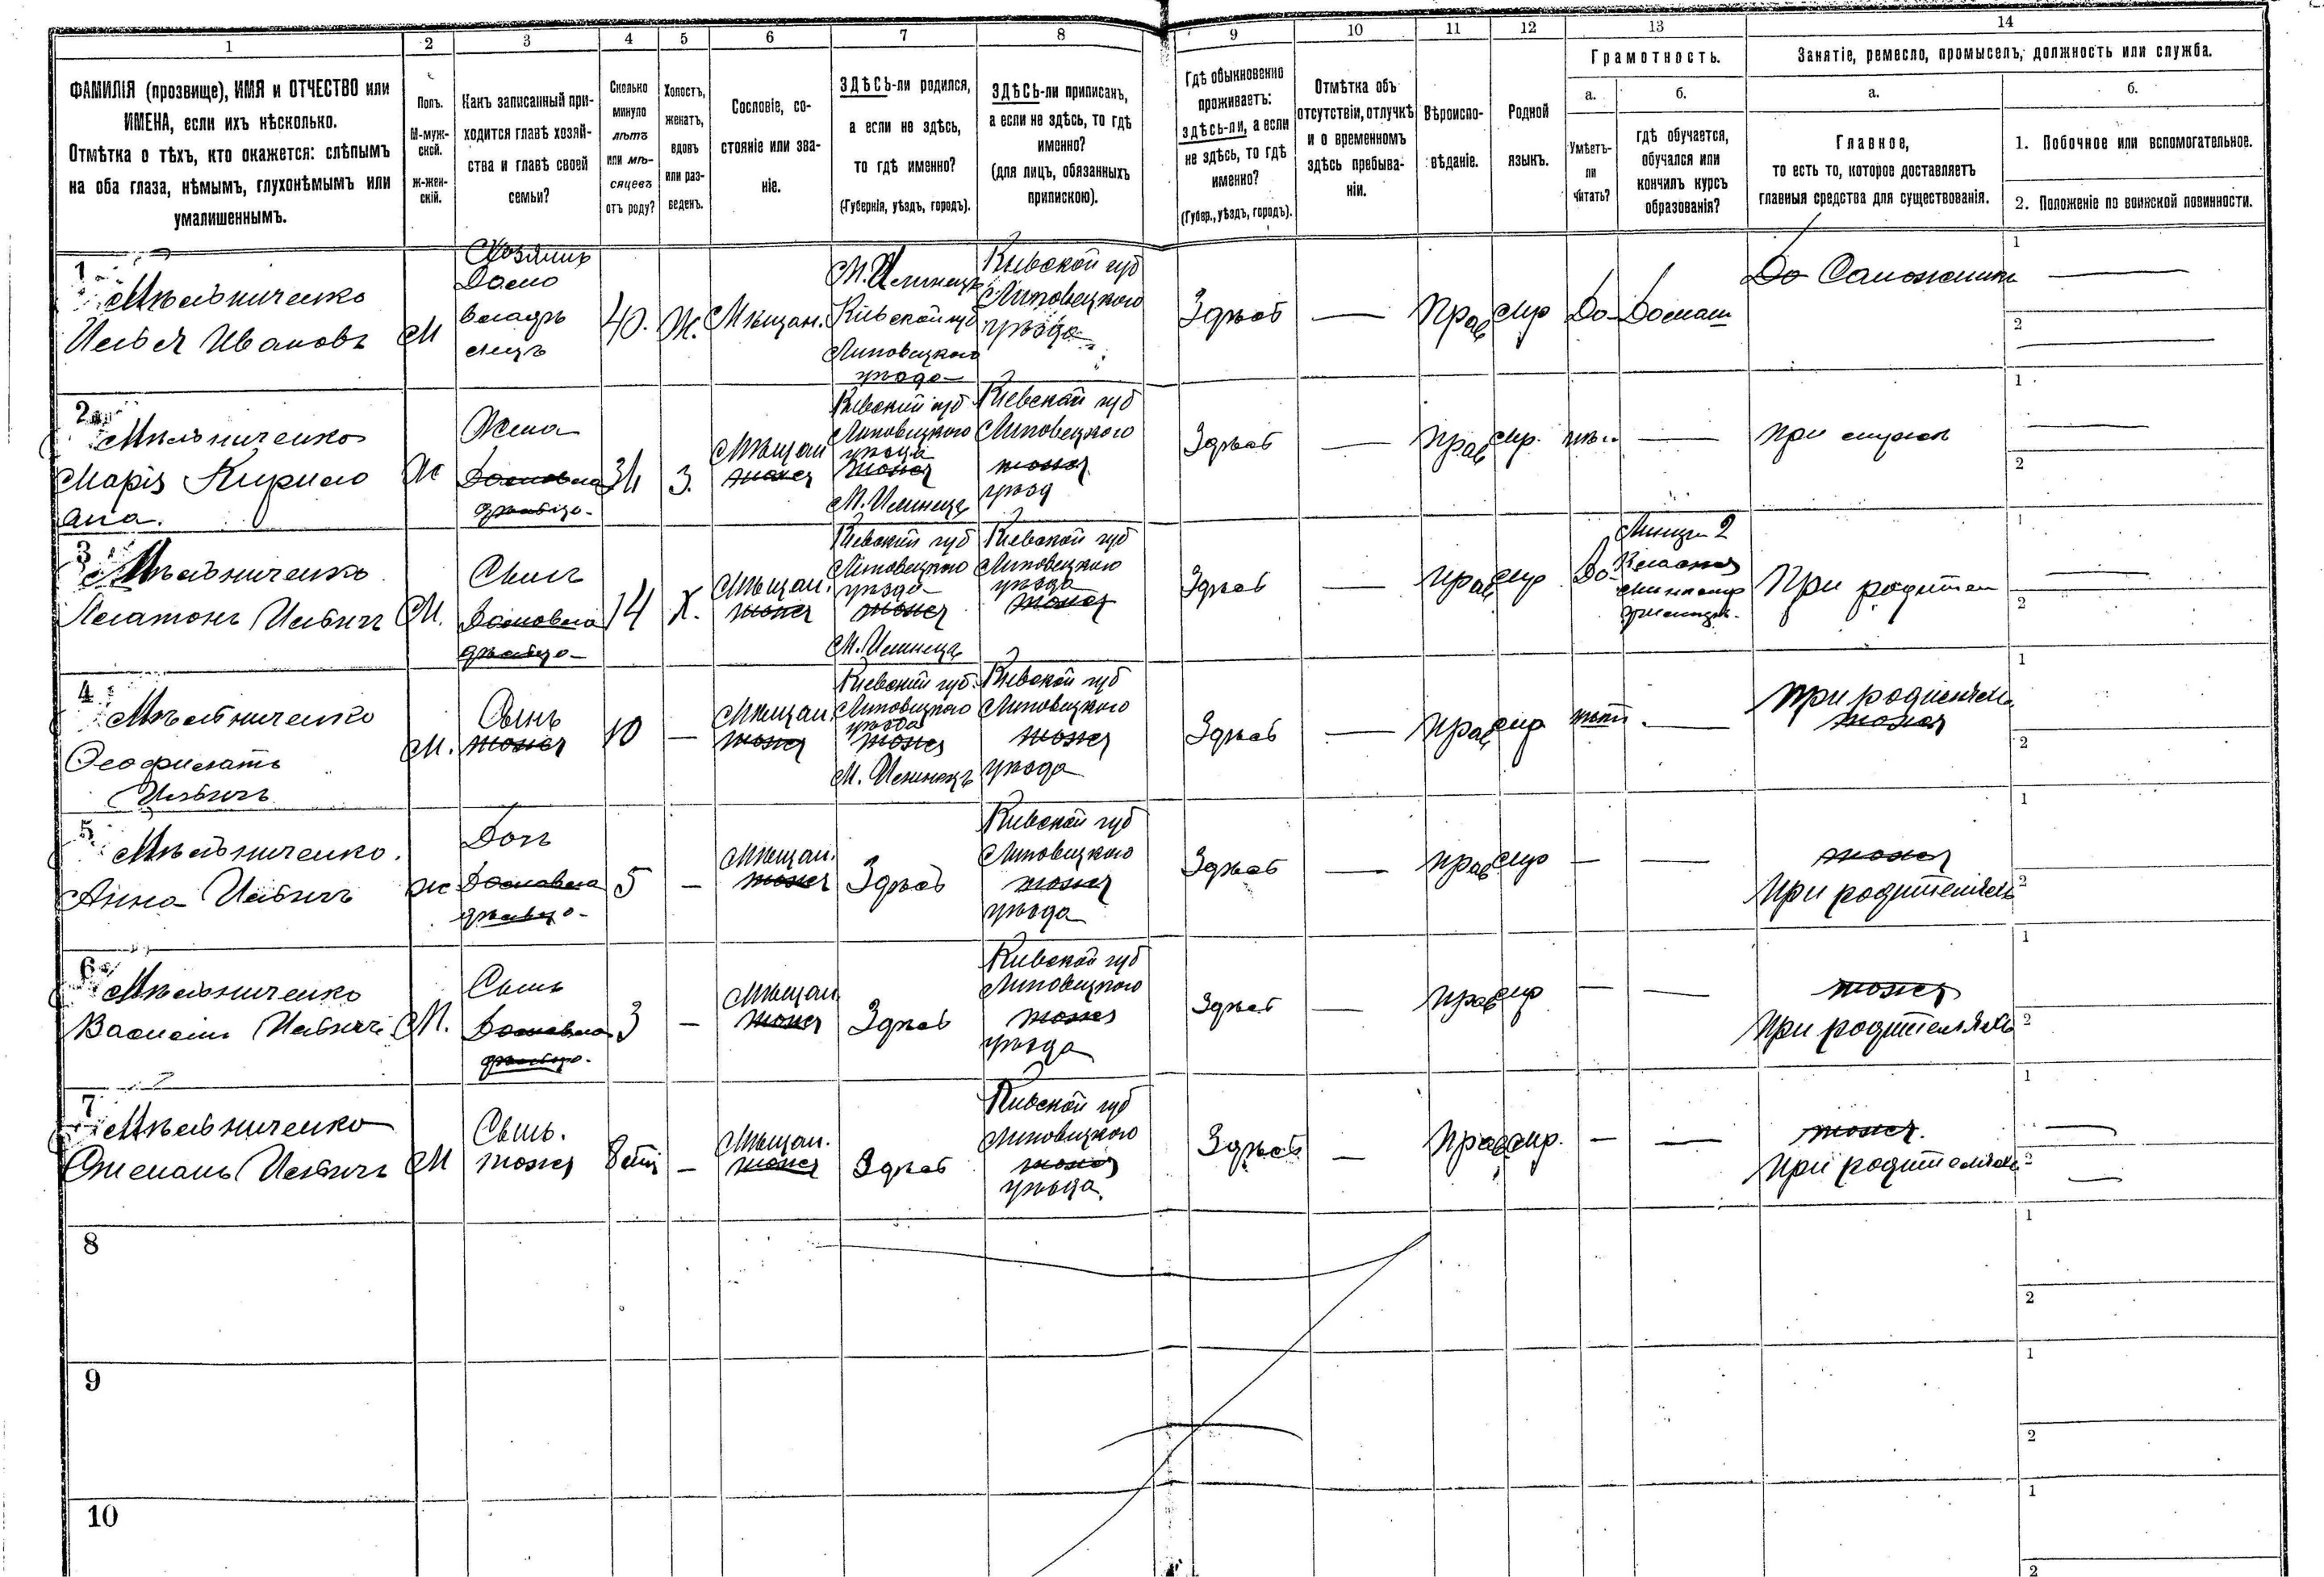 1 2 3 4 5 6 7 8 9 10 11 12 13 14
ФАМИЛІЯ (прозвище), ИМЯ и ОТЧЕСТВО или
ИМЕНА, если ихъ нѣсколько.
Отмѣтка о тѣхъ, кто окажется: слѣпымъ
на оба глаза, нѣмымъ, глухонѣмымъ или
умалишеннымъ.
Полъ.
М-муж-
ской.
Ж-жен-
скій.
Какъ записанный при-
ходится главѣ хозяй-
ства и главѣ своей
семьи?
Сколько
минуло
лѣтъ
или мѣ-
сяцевъ
отъ роду?
Холостъ,
женатъ,
вдовъ
или раз-
веденъ.
Сословіе, со-
стояніе или зва-
ніе.
ЗДѢСЬ-ли родился,
а если не здѣсь,
то гдѣ именно?
(Губернія, уѣздъ, городъ).
ЗДѢСЬ-ли приписанъ,
а если не здѣсь, то гдѣ
именно?
(для лицъ, обязанныхъ
припискою).
Гдѣ обыкновенно
проживаетъ:
здѣсь-ли, а если
не здѣсь, то гдѣ
именно?
(Губер., уѣздъ, городъ).
Отмѣтка объ
отсутствіи, отлучкѣ
и о временномъ
здѣсь пребыва-
ніи.
Вѣроиспо-
вѣданіе.
Родной
языкъ.
Грамотность.
а.
Умѣетъ-
ли
читать?
б.
гдѣ обучается,
обучался или
кончилъ курсъ
образованія?
Занятіе, ремесло, промыселъ, должность или служба.
а.
Главное,
то есть то, которое доставляетъ
главныя средства для существованія.
б.
1. Побочное или вспомогательное.
2. Положеніе по воинской повинности.
1
Мельниченко
Илья Ивановъ
М
Хозяинъ
Домо
владѣ
лецъ
40.
Ж.
Мѣщан.
М. Илинецъ
Кіевской губ
Липовецкого
уѣзда
Кіевской губ
Липовецкого
уѣзда
Здѣсь
—
Прав
Да
Домаш
Сапожникъ
1
2
2
Мельниченко
Марія Кирило
вна.
Ж
Жена
34
З.
Мѣщан
тоже
Кіевской губ
Липовецкого
уѣзда
тоже
М. Илинецъ
Кіевской губ
Липовецкого
тоже
уѣзд
Здѣсь
—
Прав
—
при мужѣ
1
2
3
Мельниченко
Платонъ Ильичъ
М.
Сынъ
14
Х.
Мѣщан.
тоже
Кіевской губ
Липовецкого
уѣзда
тоже
М. Илинецъ
Кіевской губ
Липовецкого
уѣзда
тоже
Здѣсь
—
Прав
Да
При родител
1
2
4
Мельниченко
Ѳеофилактъ
Ильичъ
М.
Сынъ
тоже
10
—
Мѣщан.
тоже
Кіевской губ
Липовецкого
уѣзда
тоже
М. Илинецъ
Кіевской губ
Липовецкого
тоже
уѣзда
Здѣсь
—
Прав
нѣтъ
—
При родителяхъ
тоже
1
2
5
Мельниченко.
Анна Ильичъ
Ж
Дочь
5
—
Мѣщан.
тоже
Здѣсь
Кіевской губ
Липовецкого
тоже
уѣзда
Здѣсь
—
Прав
—
—
тоже
При родителяхъ
1
2
6
Мельниченко
Василій Ильичъ
М.
Сынъ
3
—
Мѣщан.
тоже
Здѣсь
Кіевской губ
Липовецкого
тоже
уѣзда
Здѣсь
—
Прав
—
—
тоже
При родителяхъ
1
2
7
Мельниченко
Степанъ Ильичъ
М
Сынъ.
тоже
—
Мѣщан.
тоже
Здѣсь
Кіевской губ
Липовецкого
тоже
уѣзда.
Здѣсь
—
Прав
—
—
тоже.
При родителяхъ
1
2
8
1
2
9
1
2
10
1
2